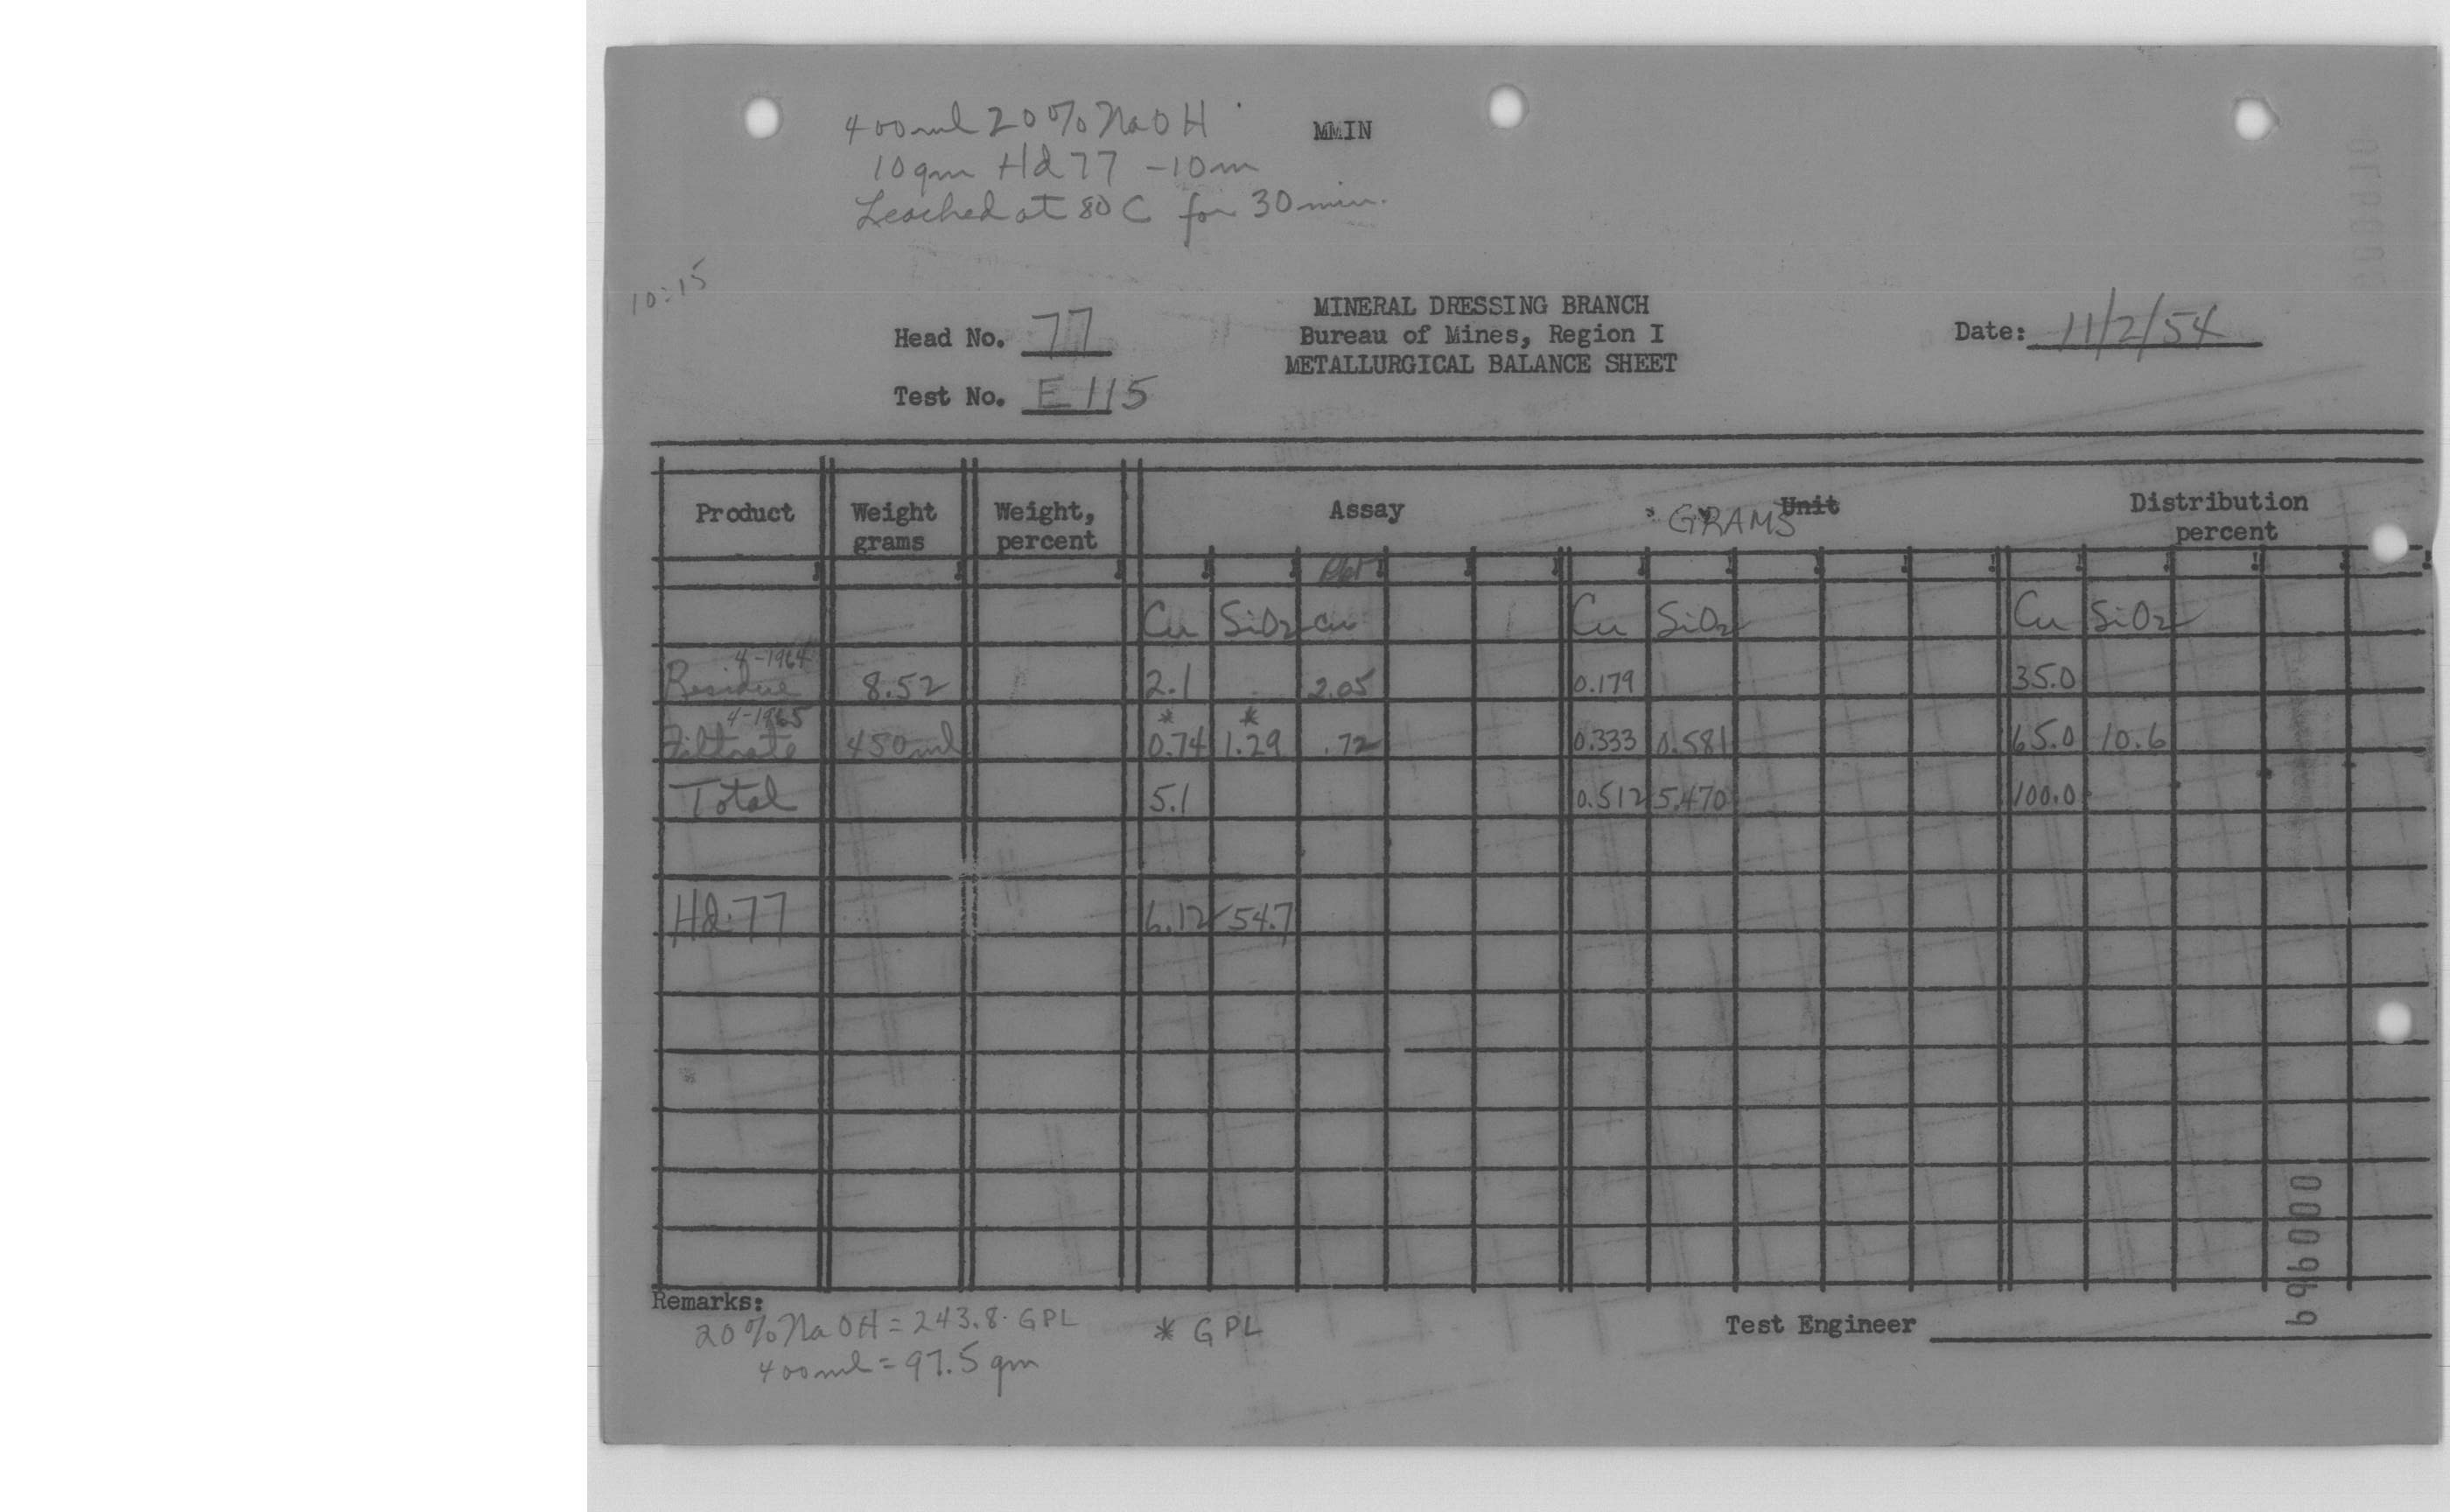 400ml 20% NaOH
MMIN
10gm Hd 77 -10m
Leached at 80 C for 30 min.
10:15
MINERAL DRESSING BRANCH
Head No. 77 Bureau of Mines, Region I Date: 11/2/54
METALLURGICAL BALANCE SHEET
Test No. E 115
Product Weight grams Weight, percent Assay Unit GRAMS Distribution percent
Cu SiO2 Cu Cu SiO2 Cu SiO2
4-1964
Residue 8.52 2.1 2.05 0.179 35.0
4-1965 * *
Filtrate 450ml 0.74 1.29 .72 0.333 0.581 65.0 10.6
Total 5.1 0.512 5.470 100.0
Hd. 77 6.12 54.7
Remarks:
20% NaOH = 243.8 GPL * GPL
Test Engineer
400ml = 97.5 gm
000969